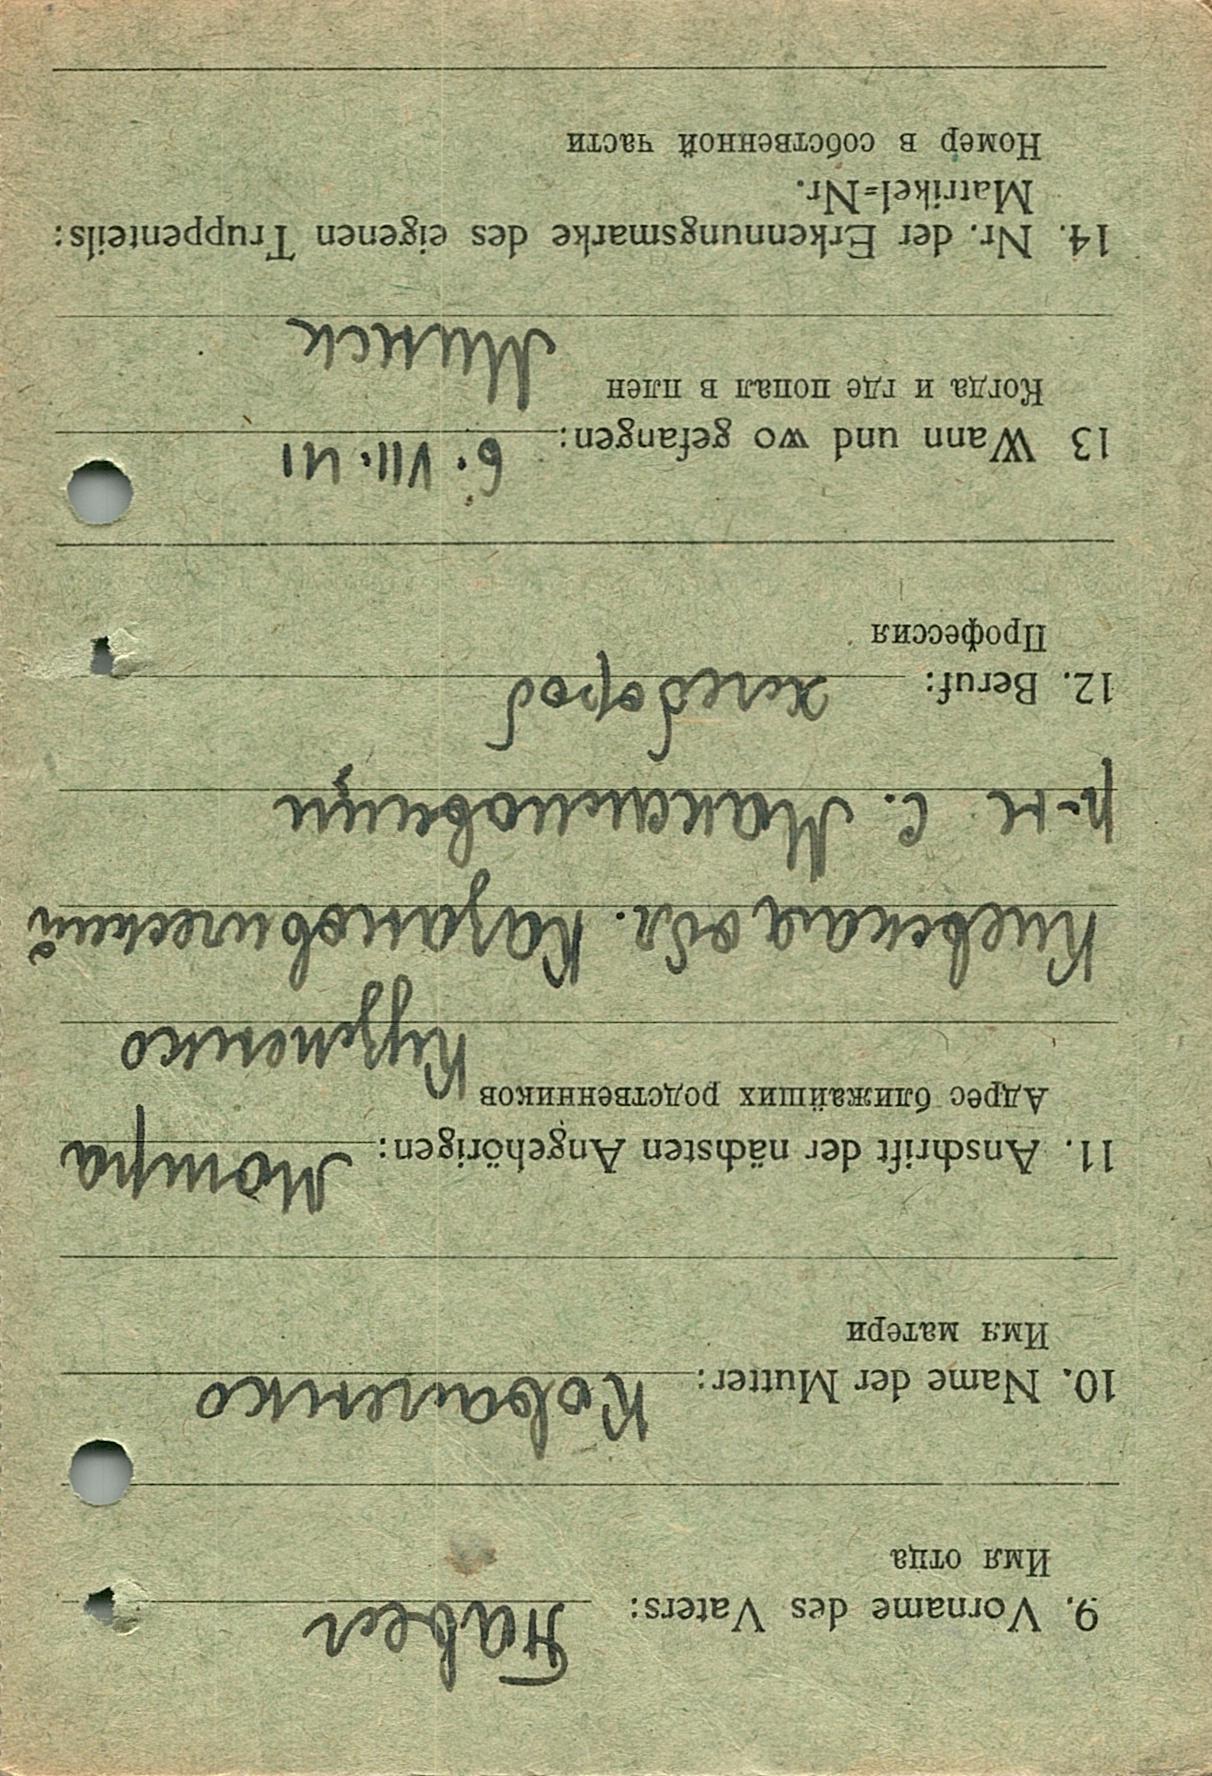 9. Vorname des Vaters: Павел
Имя отца
10. Name der Mutter: Коваленко
Имя матери
11. Anschrift der nächsten Angehörigen: Мотря
Адрес ближайших родственников Кузменко
Киевская обл. Кагановический
р-н с. Максимовици
12. Beruf: хлебороб
Профессия
13 Wann und wo gefangen: 6. VII. 41
Когда и где попал в плен Минск
14. Nr. der Erkennungsmarke des eigenen Truppenteils:
Matrikel=Nr.
Номер в собственной части